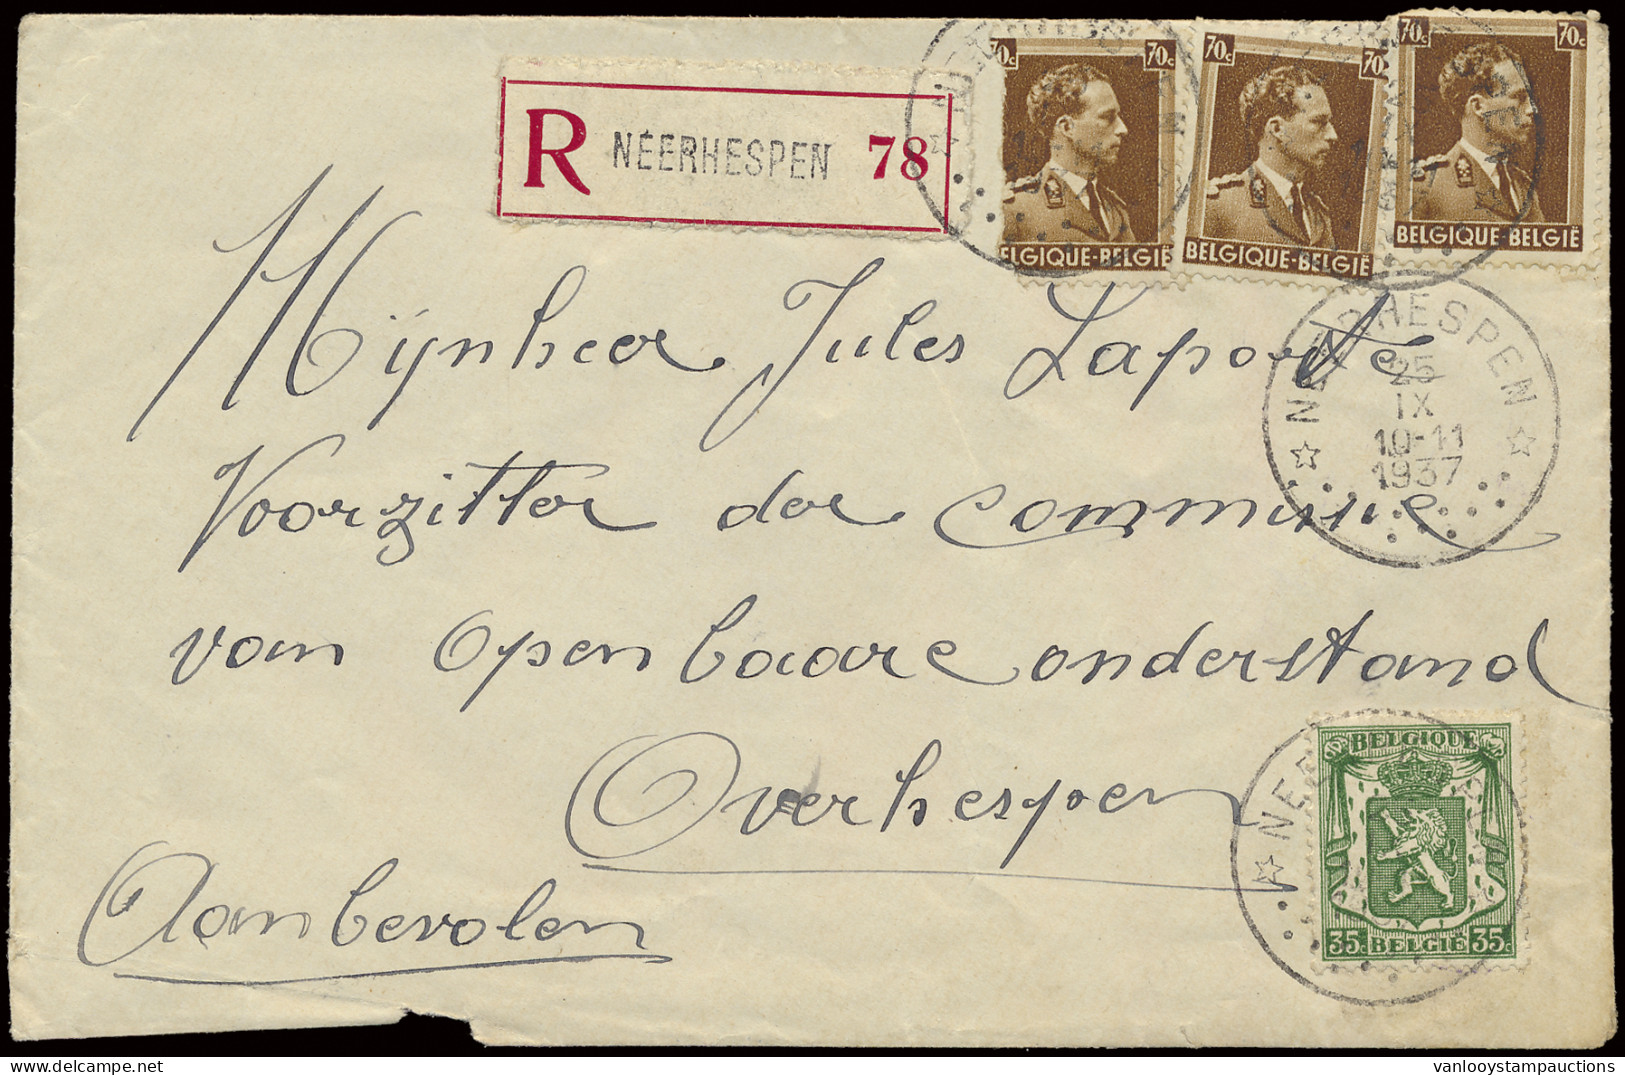 R NEERHESPEN 78
70c 70c
ELGIQUE-BELGIË
70c 70
BELGIQUE-BELGIË
70c 70c
BELGIQUE-BELGIË
NEERHESPEN
25
IX
10-11
1937
Mijnheer Jules Laporte
Voorzitter der commissie
van Openbaare onderstand
Overhespen
Aanbevolen
BELGIQUE
35c BELGIË 35c
vanlooystampauctions